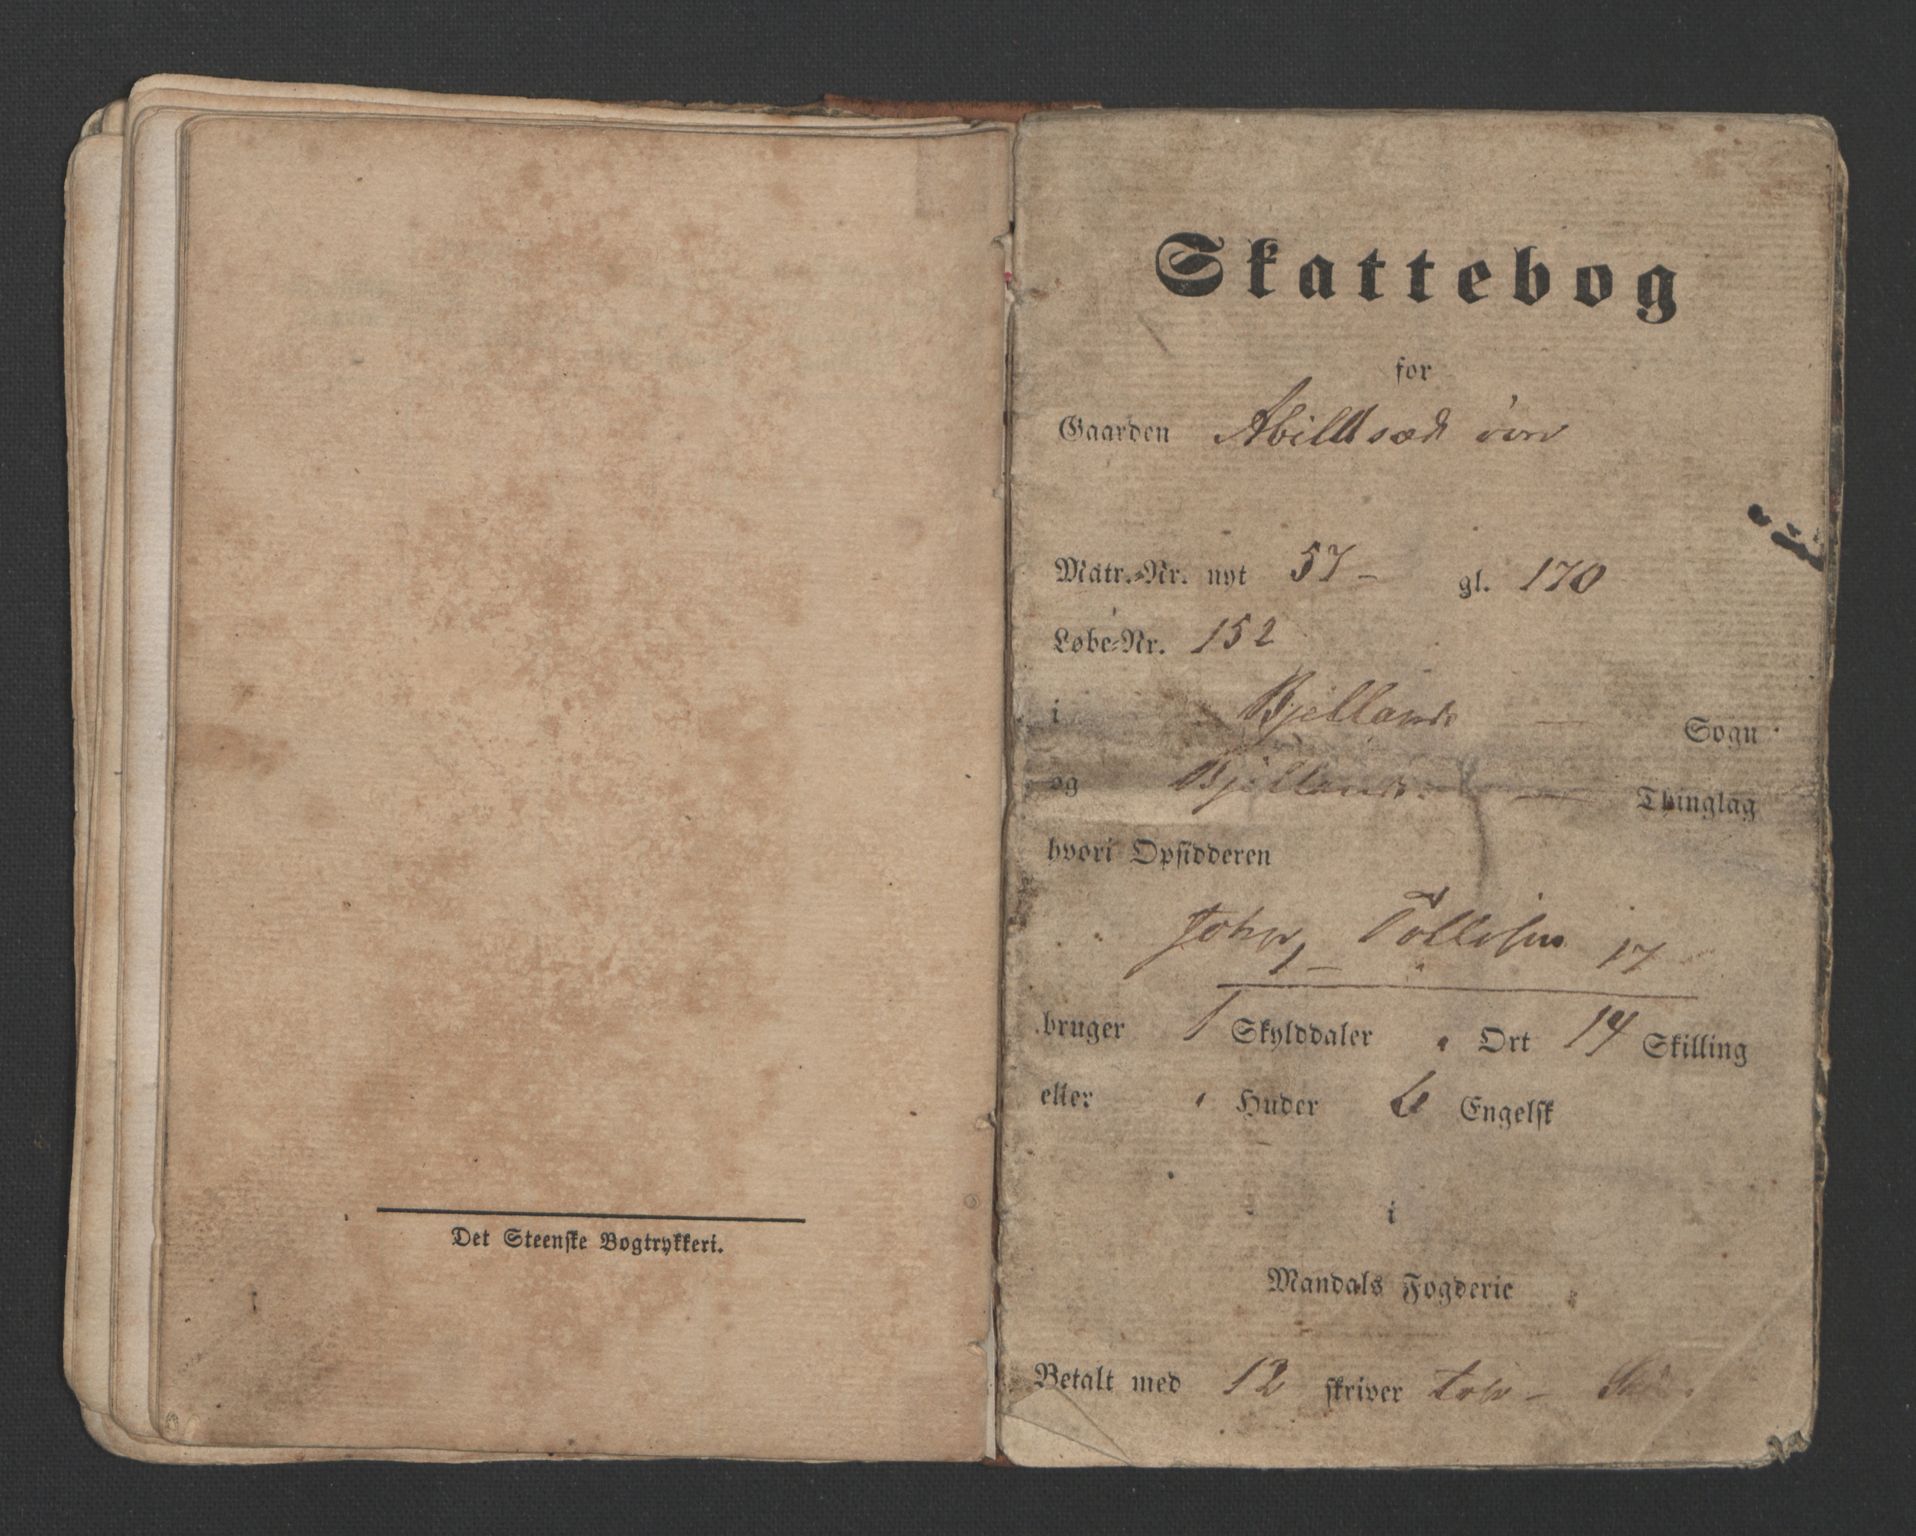 Det Steenske Bogtrykkeri.
Skattebog
for
Gaarden Abildsæd øvre
Matr.-Nr. nyt 57 - gl. 170
Løbe-Nr. 152
i Bjellands — Sogn
og Bjellands — Thinglag
hvori Opsidderen
John Tollefsen 17
bruger 1 Skylddaler " Ort 14 Skilling
eller " Huder 6 Engelsk
i
Mandals Fogderie
Betalt med 12 skriver tolv -